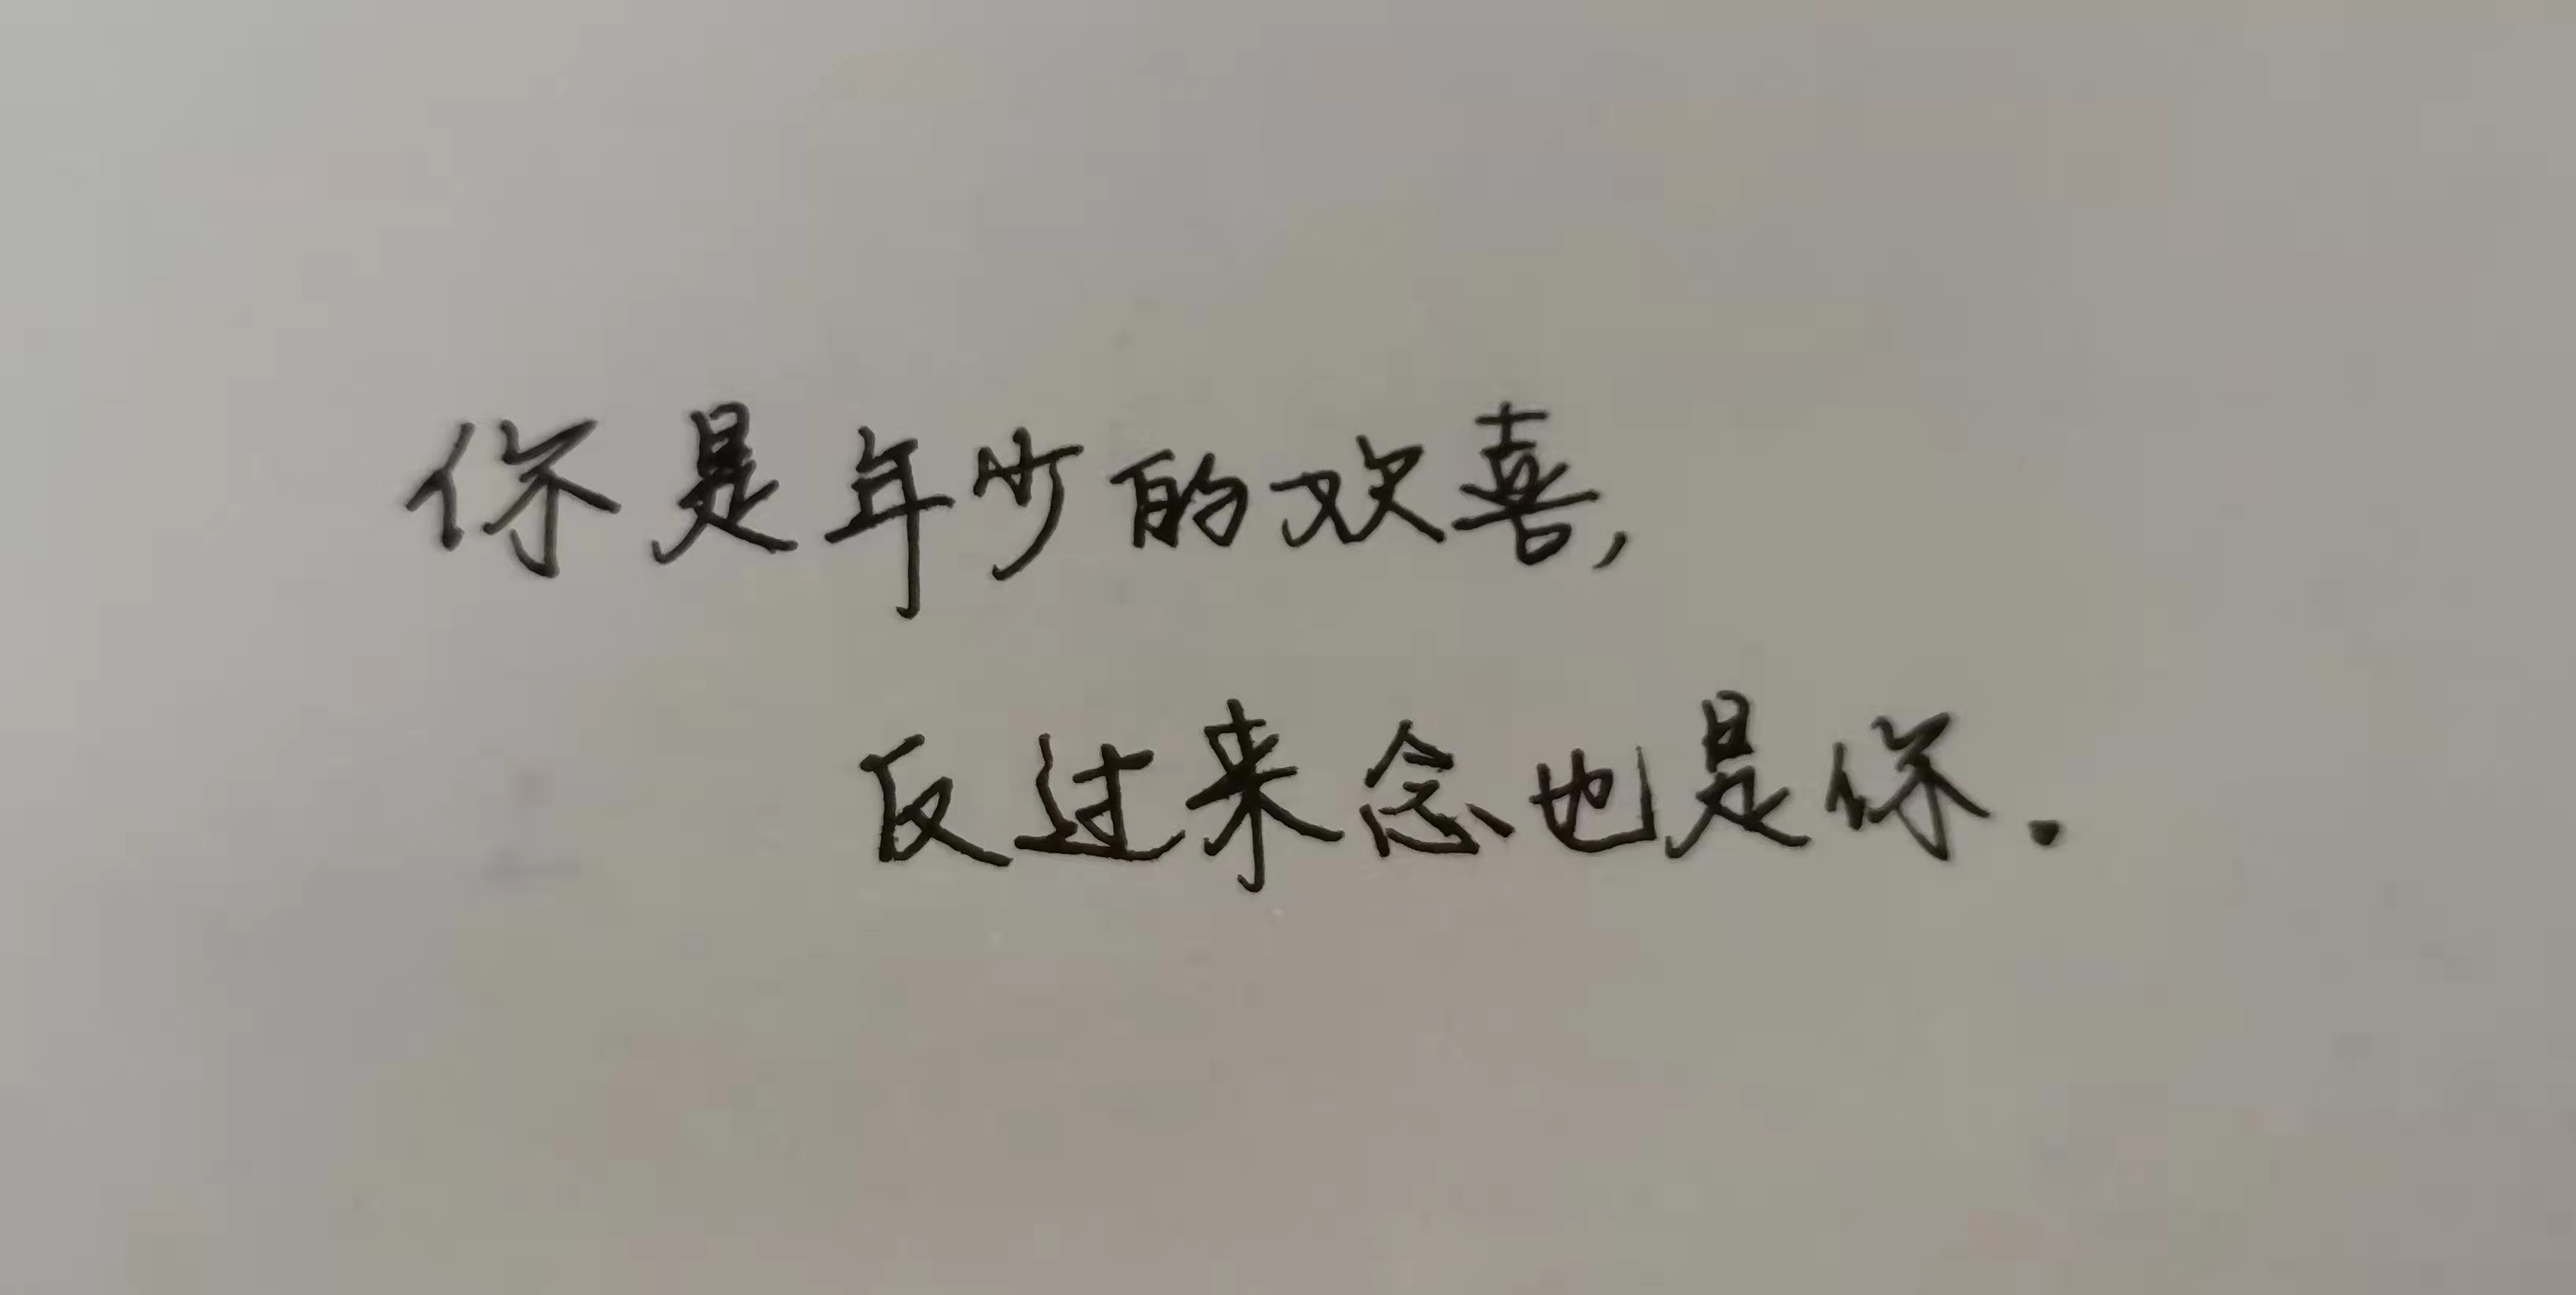 你是年少的欢喜,
反过来念也是你.